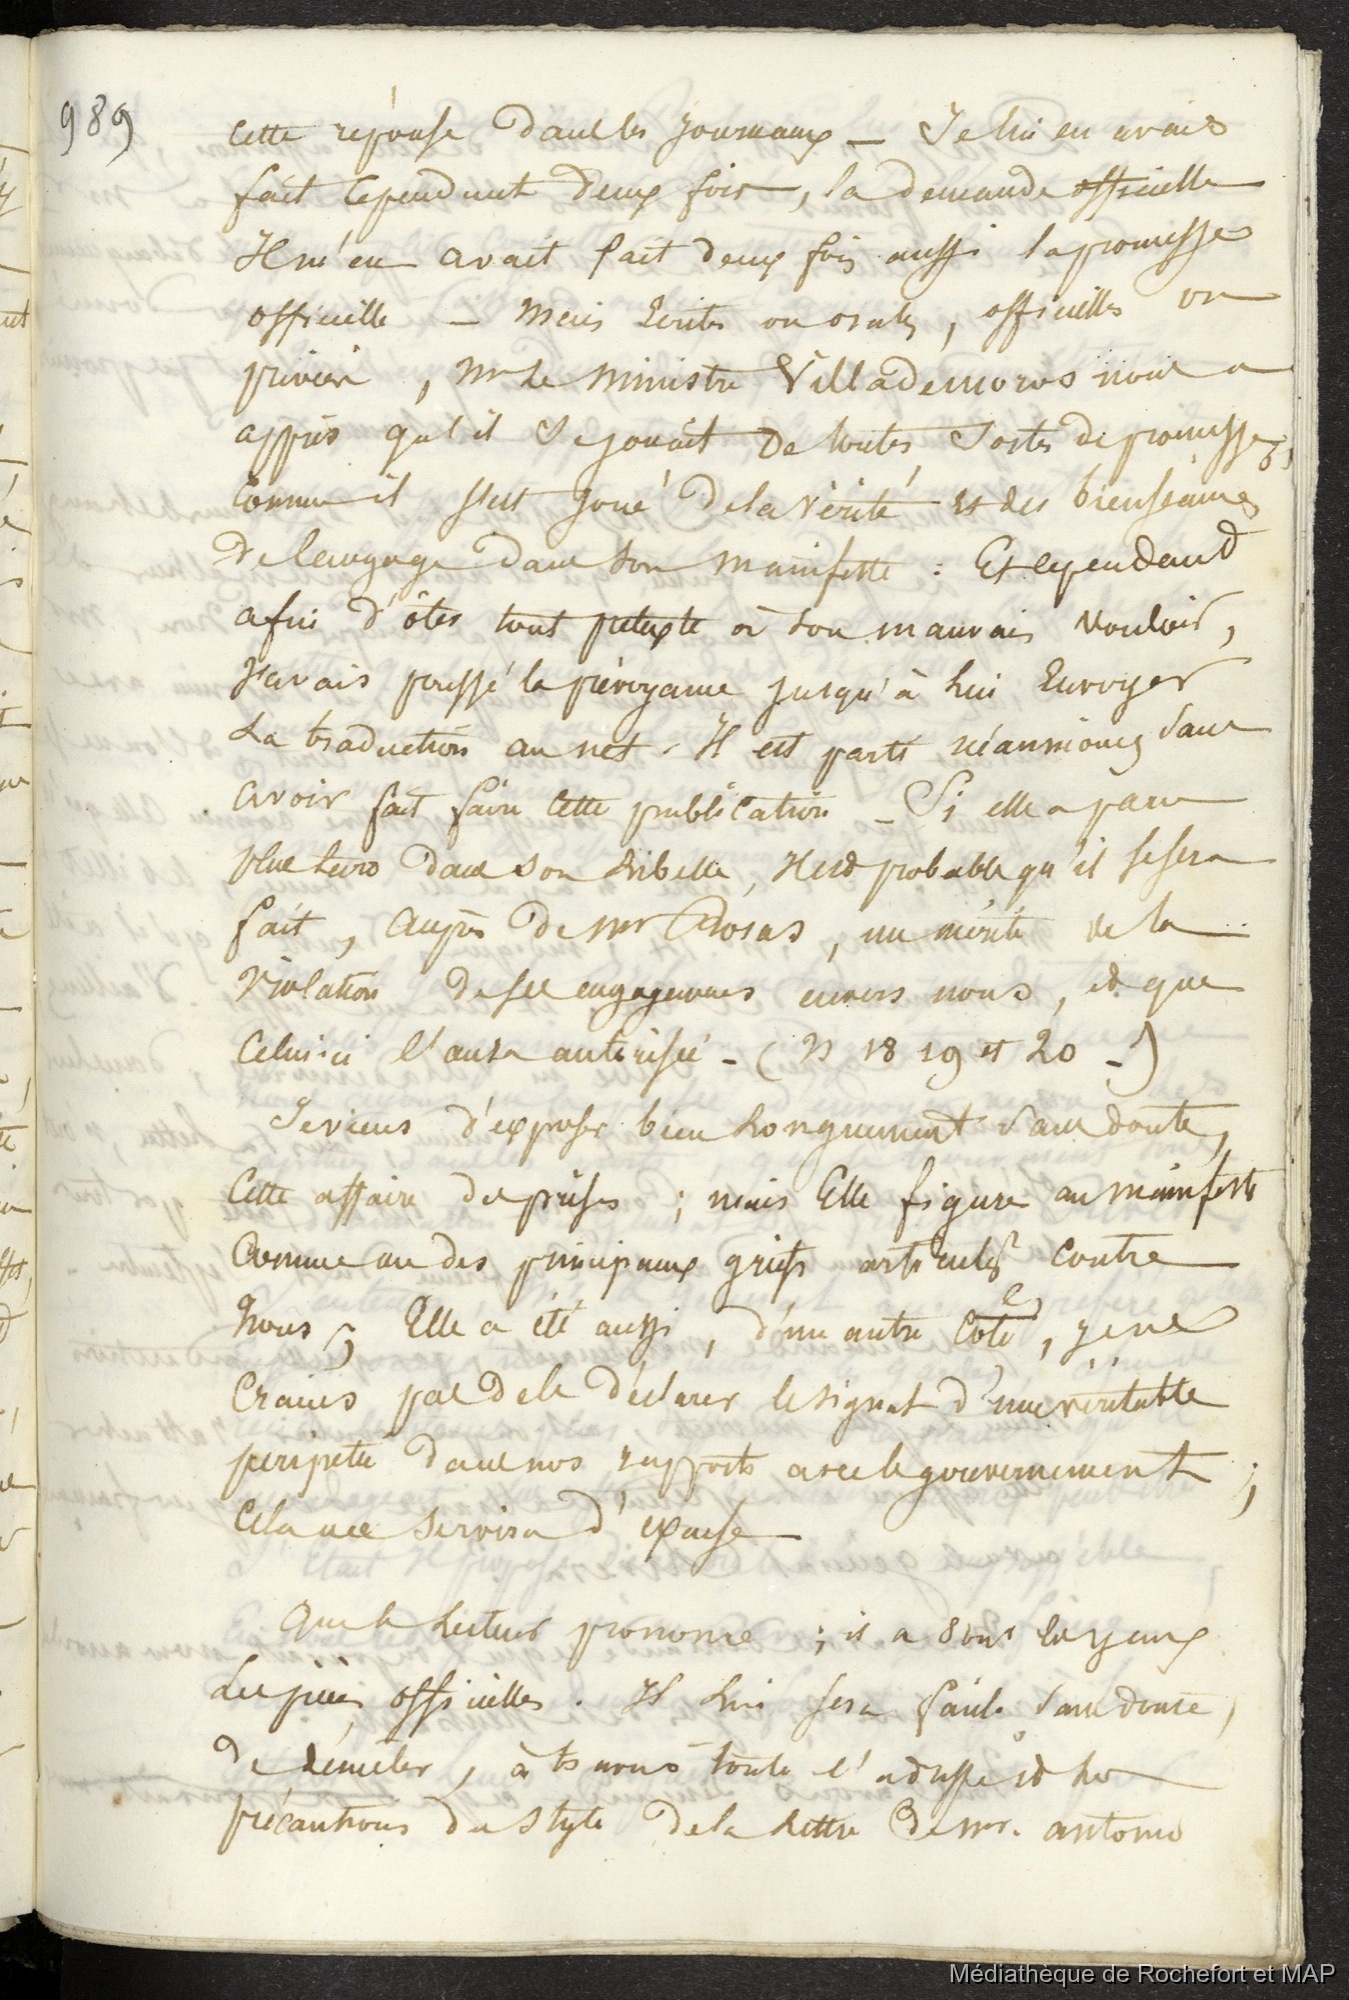 989
cette réponse dans les journaux _ Je lui en avais
fait cependant deux fois, la demande officielle
Il m'en avait fait deux fois aussi la promesse
officielle _ Mais écrites ou orales, officielles ou
privées, Mr le ministre Villademoros nous a
appris qu'il se jouait de toutes sortes de promesses,
comme il s'est joué de la vérité et des bienséances
de langage dans son manifeste : Et cependant
afin d'ôter tout prétexte à son mauvais vouloir,
j'avais poussé la prévoyance jusqu'à lui Envoyer
La traduction au net. Il est parti néanmoins sans
avoir fait faire cette publication _ Si elle a paru
plus tard dans son Libelle, Il est probable qu'il se sera
fait, auprès de Mr Rosas, un mérite de la
violation de ses engagements envers nous, et que
Celui-ci l'aura autorisée - (N 18 19 et 20 -)
Je viens d'exposer bien Longuement sans doute,
Cette affaire des prises ; mais Elle figure au manifeste
Comme un des principaux griefs articulés contre
Nous ; Elle a été aussi, d'un autre Côté, je ne
Crains pas de le déclarer le signal d'une véritable
péripétie dans nos rapports avec le gouvernement ;
Cela me servira d'excuse
Que le Lecteur prononce ; il a sous les yeux
Les pièces officielles. Il lui sera facile sans doute,
de démêler, à travers toute l'adresse et les
précautions du style de la Lettre de Mr. antonio
Médiathèque de Rochefort et MAP